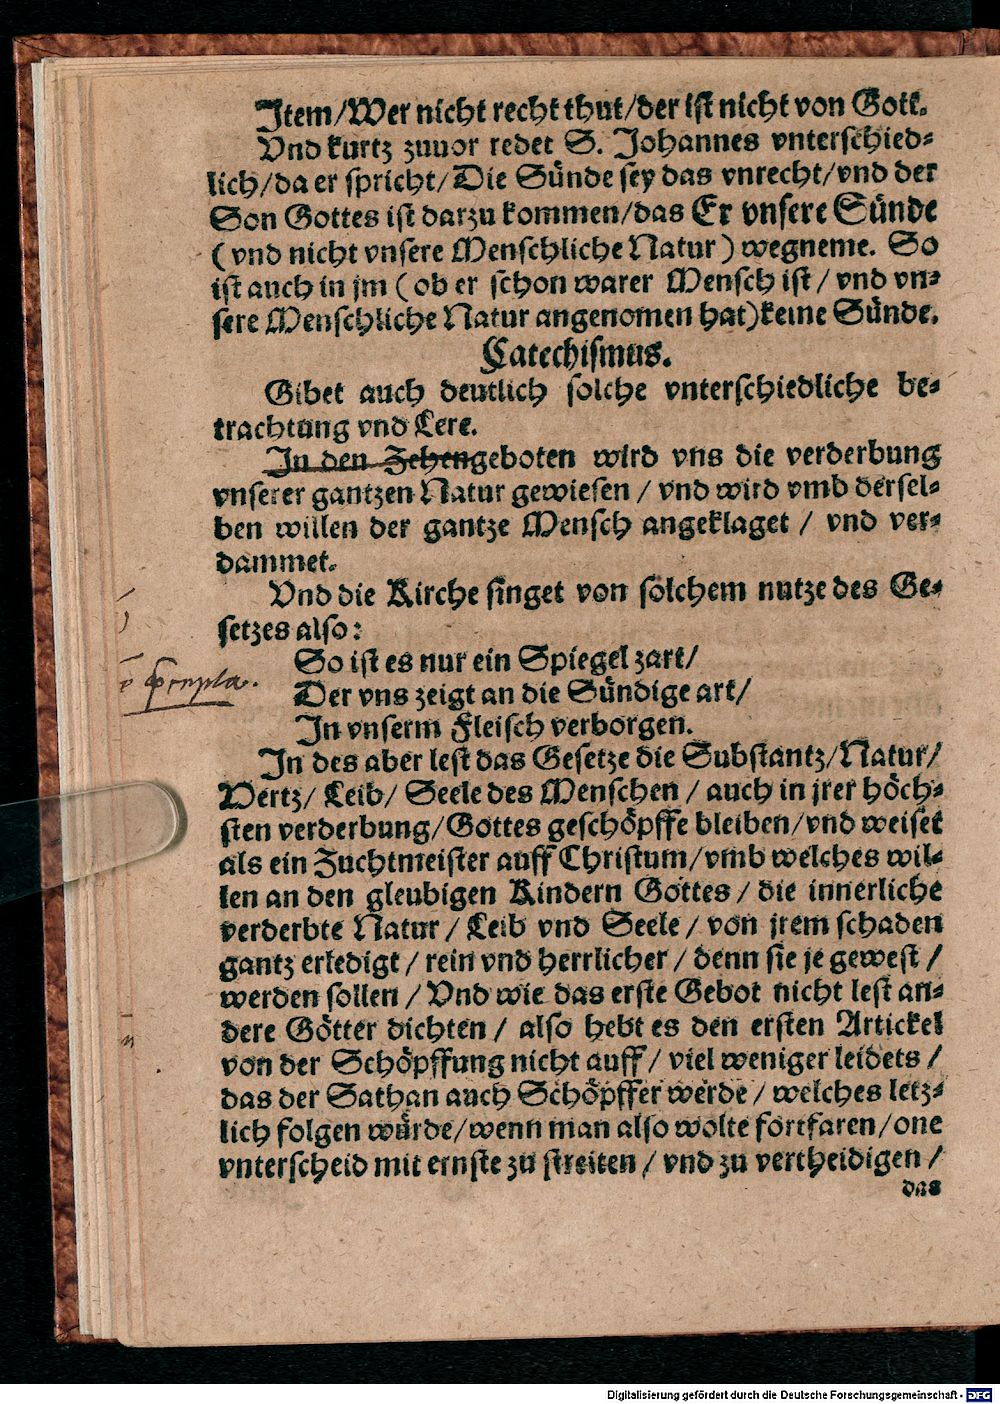 Item/Wer nicht recht thut/der ist nicht von Gott.
Vnd kurtz zuuor redet S. Johannes vnterschied-
lich/da er spricht/Die Sünde sey das vnrecht/vnd der
Son Gottes ist darzu kommen/das Er vnsere Sünde
(vnd nicht vnsere Menschliche Natur) wegneme. So
ist auch in jm (ob er schon warer Mensch ist/vnd vn-
sere Menschliche Natur angenomen hat)keine Sünde.
Catechismus.
Gibet auch deutlich solche vnterschiedliche be-
trachtung vnd Lere.
In den Zehengeboten wird vns die verderbung
vnserer gantzen Natur gewiesen/vnd wird vmb dersel-
ben willen der gantze Mensch angeklaget/vnd ver-
dammet.
Vnd die Kirche singet von solchem nutze des Ge-
setzes also:
So ist es nur ein Spiegel zart/
Der vns zeigt an die Sündige art/
In vnserm Fleisch verborgen.
In des aber lest das Gesetze die Substantz/Natur/
Hertz/Leib/Seele des Menschen/auch in jrer höch-
sten verderbung/Gottes geschöpffe bleiben/vnd weiset
als ein Zuchtmeister auff Christum/vmb welches wil-
len an den gleubigen Kindern Gottes/die innerliche
verderbte Natur/Leib vnd Seele/von jrem schaden
gantz erledigt/rein vnd herrlicher/denn sie je gewest/
werden sollen/Vnd wie das erste Gebot nicht lest an-
dere Götter dichten/also hebt es den ersten Artickel
von der Schöpffung nicht auff/viel weniger leidets/
das der Sathan auch Schöpffer werde/welches letz-
lich folgen würde/wenn man also wolte fortfaren/one
vnterscheid mit ernste zu streiten/vnd zu vertheidigen/
das
Digitalisierung gefördert durch die Deutsche Forschungsgemeinschaft - DFG